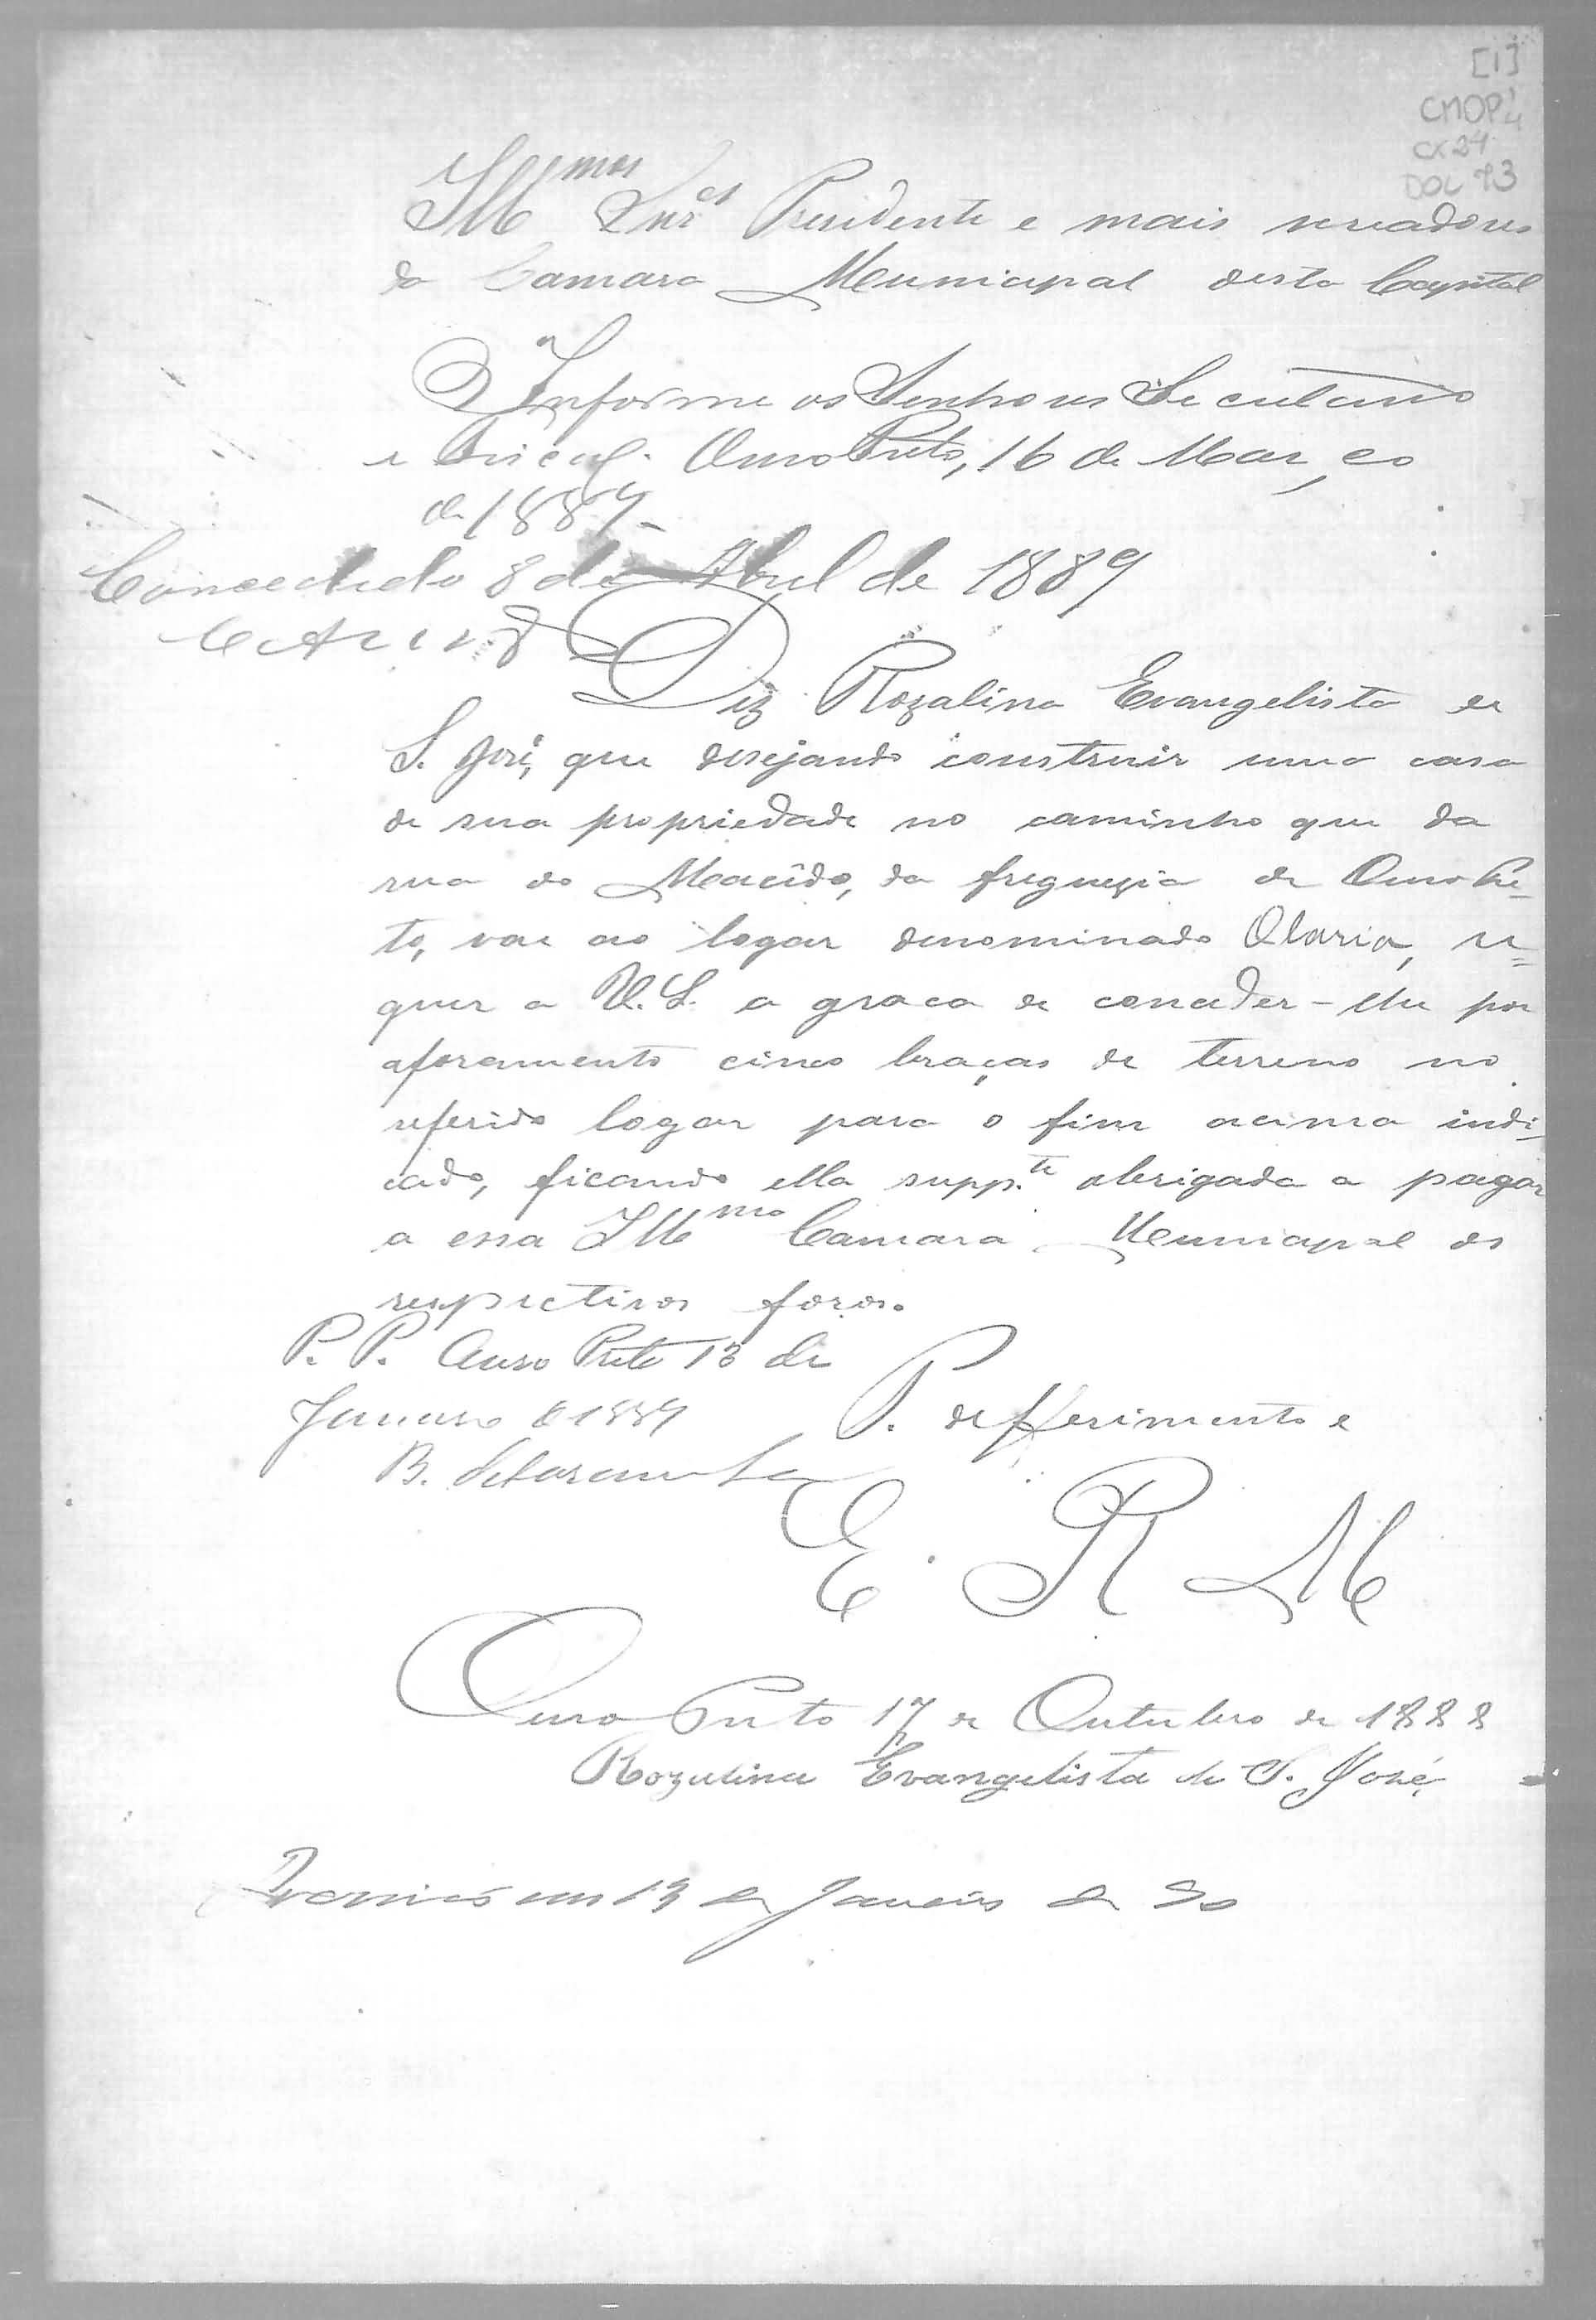 [1]
CMOP
CX 24
DOC 73
Illmos Snres Presidente e mais vereadores
da Camara Municipal desta Capital
Informe os Senhores Secretario
e Fiscal. Ouro Preto, 16 de Março
de 1889
Concedido 8 de Abril de 1889
Diz Rozalina Evangelista de
S. José, que desejando construir uma casa
de sua propriedade no caminho que da
rua do Macêdo, da freguezia de Ouro Pre-
to, vae ao logar denominado Olaria, re=
quer a V. S. a graca de conceder-lhe por
aforamento cinco braças de terreno no
referido logar para o fim acima indi-
cado, ficando ella supp.te obrigada a pagar
a essa Illma Camara Municipal os
respectivos foros.
P. P. Ouro Preto 13 de
Janeiro de 1889
B.
P. defferimento e
E. R M
Ouro Preto 17 de Outubro de 1888
Rozalina Evangelista de S. José,
em 13 de Janeiro de